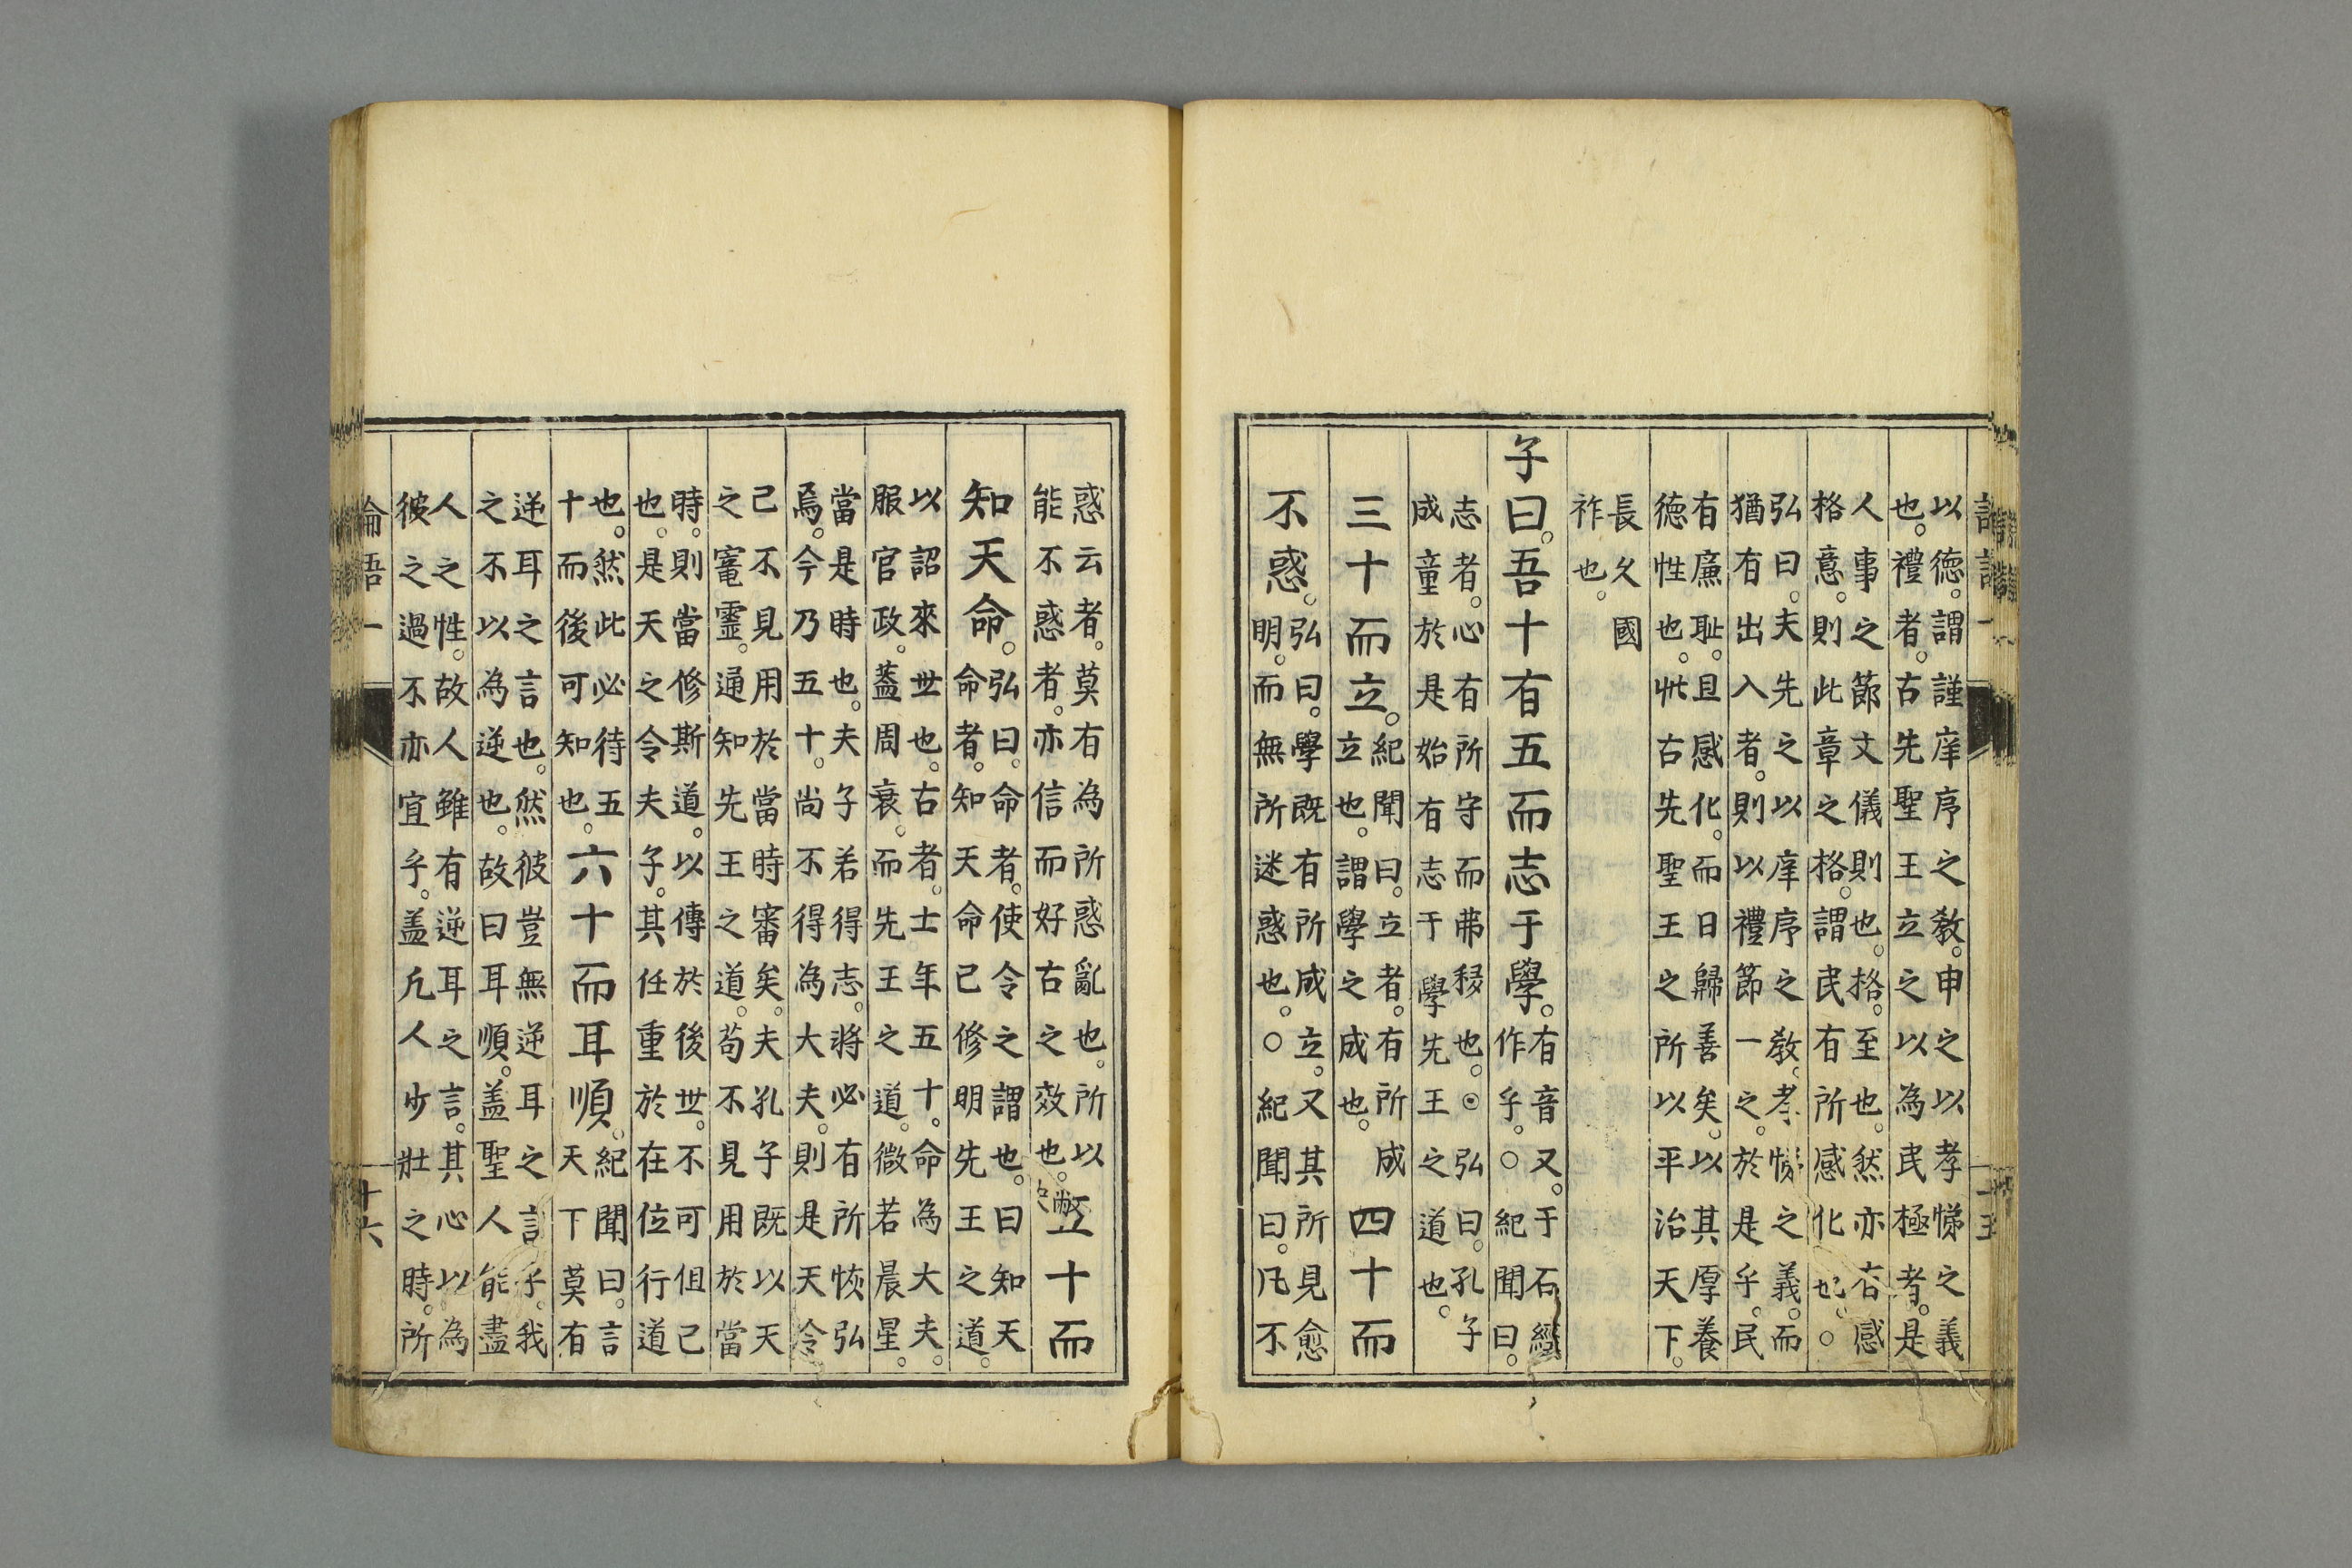 以德。謂謹庠序之敎。申之以孝悌之義
也。禮者。古先聖王立之以為民極者。是
人事之節文儀則也。格。至也。然亦有感
格意。則此章之格。謂民有所感化也。○
弘曰。夫先之以庠序之敎。孝悌之義。而
猶有出入者。則以禮節一之。於是乎。民
有廉耻。且感化。而日歸善矣。以其厚養
德性也。此古先聖王之所以平治天下。
長久國
祚也。
子曰。吾十有五而志于學。
有音又。于石經
作乎。○紀聞曰。
志者。心有所守而弗移也。⊙弘曰。孔子
成童於是始有志于學先王之道也。
三十而立。
紀聞曰。立者。有所成
立也。謂學之成也。
四十而
不惑。
弘曰。學既有所成立。又其所見愈
明。而無所迷惑也。○紀聞曰。凡不
惑云者。莫有為所惑亂也。所以
能不惑者。亦信而好古之效也。
五十而
知天命。
弘曰。命者。使令之謂也。曰知天
命者。知天命己修明先王之道。
以詔來世也。古者。士年五十。命為大夫。
服官政。蓋周衰。而先王之道。微若晨星。
當是時也。夫子若得志。將必有所恢弘
焉。今乃五十。尚不得為大夫。則是天令
己不見用於當時審矣。夫孔子既以天
之寵靈。通知先王之道。苟不見用於當
時。則當修斯道。以傳於後世。不可但已
也。是天之令夫子。其任重於在位行道
也。然此必待五
十而後可知也。
六十而耳順。
紀聞曰。言
天下莫有
逆耳之言也。然彼豈無逆耳之言乎。我
之不以為逆也。故曰耳順。盖聖人能盡
人之性。故人雖有逆耳之言。其心以為
彼之過不亦宜乎。盖凡人少壯之時。所
論語一
十六